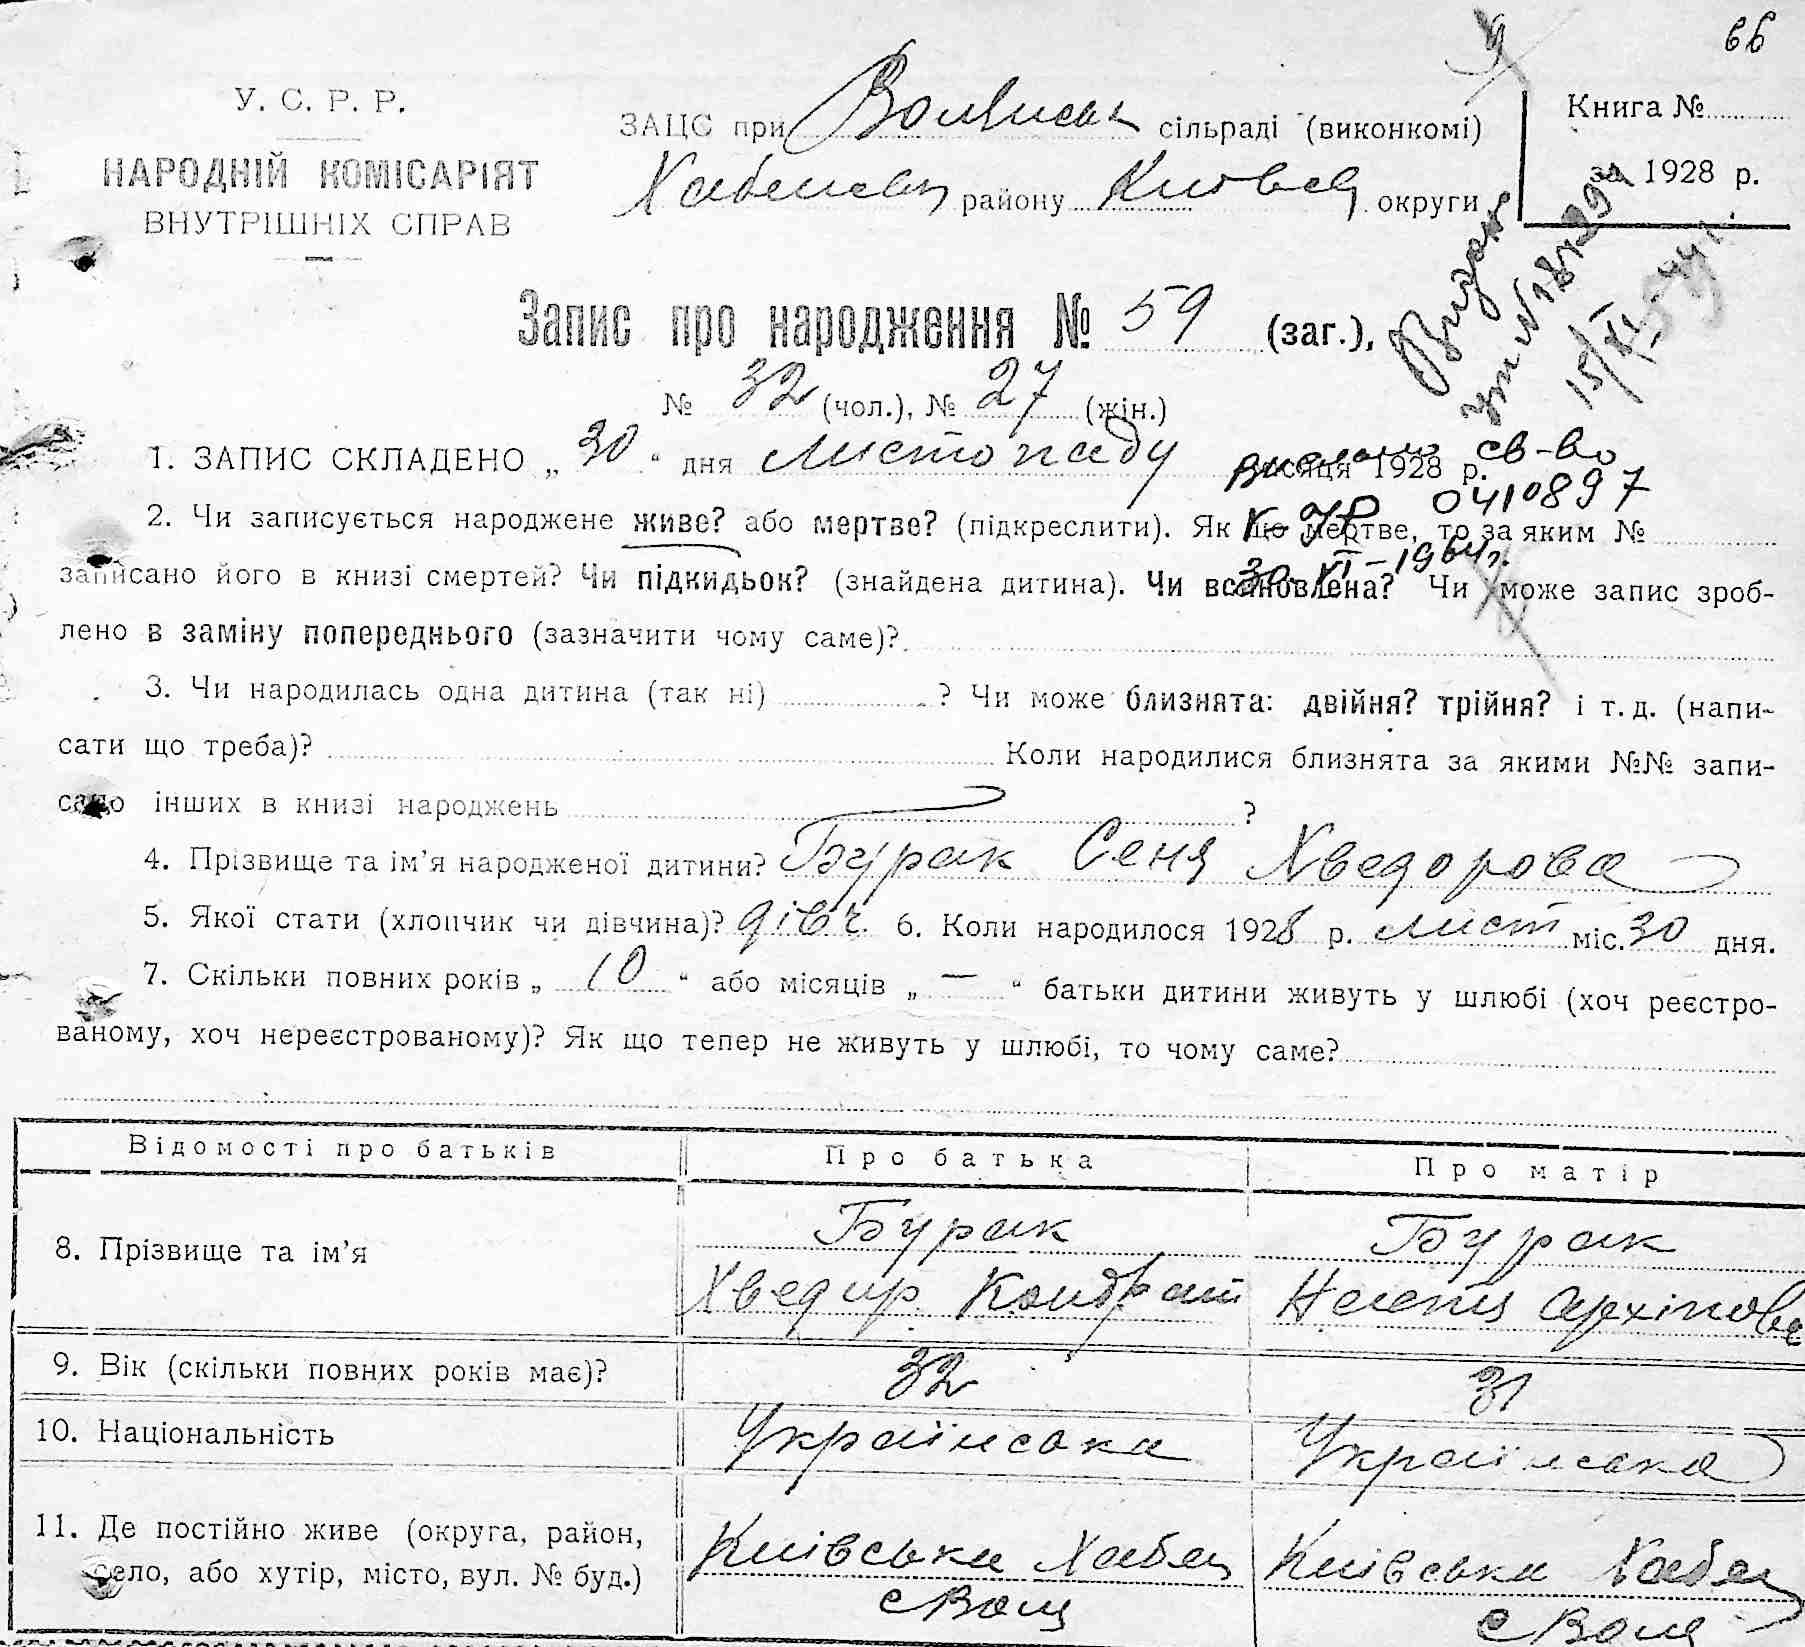 66
У. С. Р. Р.
НАРОДНІЙ КОМІСАРІЯТ
ВНУТРІШНІХ СПРАВ
ЗАЦС при сільраді (виконкомі)
району округи
Книга №
за 1928 р.
Запис про народження № 59 (заг.),
№ 32 (чол.), № 27 (жін.)
Видан
15/XI
1. ЗАПИС СКЛАДЕНО „ 30 “ дня листопаду місяця 1928 р.
св-во
0410897
2. Чи записується народжене живе? або мертве? (підкреслити). Як що мертве, то за яким №
30 XI-1964г.
записано його в книзі смертей? Чи підкидьок? (знайдена дитина). Чи встановлена? Чи може запис зроб-
лено в заміну попереднього (зазначити чому саме)?
3. Чи народилась одна дитина (так ні) ? Чи може близнята: двійня? трійня? і т. д. (напи-
сати що треба)? Коли народилися близнята за якими №№ запи-
сано інших в книзі народжень ?
4. Прізвище та ім’я народженої дитини? Бурак Сеня Хведорова
5. Якої стати (хлопчик чи дівчина)? дівч. 6. Коли народилося 1928 р. лист міс. 30 дня.
7. Скільки повних років „ 10 “ або місяців „ — “ батьки дитини живуть у шлюбі (хоч реєстро-
ваному, хоч нереєстрованому)? Як що тепер не живуть у шлюбі, то чому саме?
Відомості про батьків Про батька Про матір
8. Прізвище та ім’я Бурак Бурак
Хведир Кондрат Архіпова
9. Вік (скільки повних років має)? 32 31
10. Національність Українська Українська
11. Де постійно живе (округа, район,
село, або хутір, місто, вул. № буд.)
Київська Київська